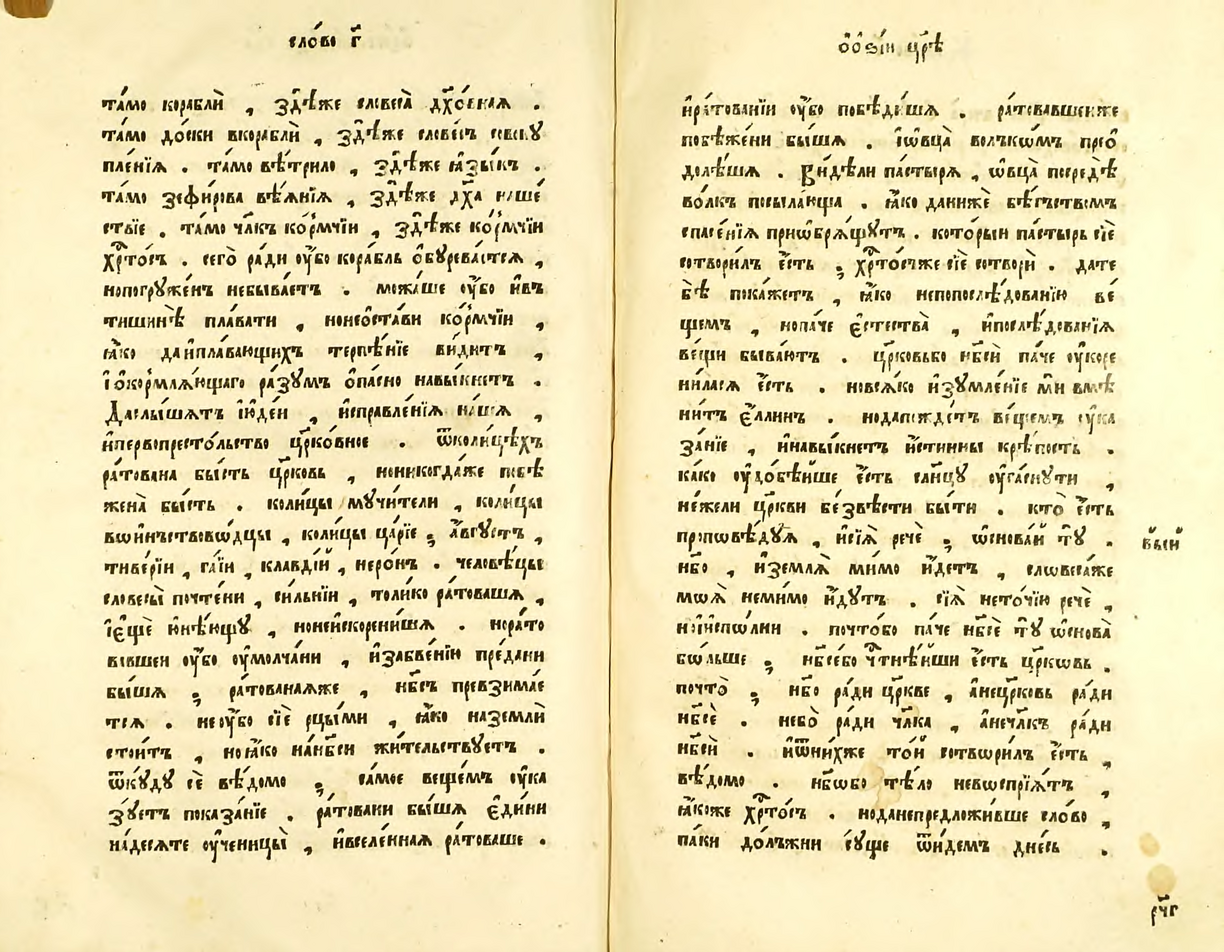 сло́во г҃
та́мо кораблѝ , здѣ́же словеса̀ дх҃о́вная .
та́мо до́ски вкораблѝ , здѣ́же слове́съ совокꙋ
пле́нїѧ . та́мо вѣ́трило , здѣ́же ꙗ҆зы́къ .
та́мо зефи́рова вѣ́ѧнїѧ , здѣ́же дх҃а на́ше
ствїе . та́мо чл҃къ ко́рмчїи , здѣ́же ко́рмчїи
хрⷭ҇то́съ . сего̀ ра́ди ᲂу҆́бо кора́бль ѡ҆бꙋрева́етсѧ ,
нопогрꙋже́нъ небыва́етъ . можа́ше ᲂу҆́бо и҆въ
тишинѣ̀ пла́вати , нонеѡ҆ста́ви ко́рмчїи ,
ꙗ҆́ко даи҆пла́вающихъ терпѣ́нїе ви́дитъ ,
і҆ѡ҆кормлѧ́ющаго ра́зꙋмъ ѻ҆па́сно навы́кнетъ .
Даслы́шатъ і҆ю҆де́и , и҆справле́нїѧ на́шѧ ,
и҆первопресто́льство цр҃ко́вное . ѿколи́цѣхъ
ра́тована бы́сть цр҃ковь , нониколда́же побѣ
жена̀ бы́сть . коли́цы мꙋчи́тели , коли́цы
вѡи́нъствовѡдцы , коли́цы ца́рїе ; а҆́вгꙋстъ ,
тиве́рїи , га́їи , кла́вдїи , неро́нъ . человѣ́цы
словесы̀ почте́ни , си́льнїи , толи́ко ра́товаша ,
і҆є҆щѐ ю҆нѣ́ющꙋ , нонеи҆скорени́шѧ . нора́то
ва́вшеи ᲂу҆́бо ᲂу҆молча́ни , и҆забве́нїю пре́дани
бы́шѧ ; ра́тованаѧже , нб҃съ превзима́е
тсѧ . неᲂу҆́бо сїѐ рцы́ми , ꙗ҆́ко наземлѝ
стои́тъ , ноꙗ҆́ко нанб҃сѝ жи́тельствꙋетъ .
ѿкꙋ́дꙋ сѐ вѣ́домо ; са́мое веще́мъ ᲂу҆ка
зꙋ́етъ показа́нїе . ра́товани бы́шѧ є҆ди́ни
на́десѧте ᲂу҆ченицы̀ , и҆вселе́ннаѧ ра́товаше .
ѻ҆ѻ҆зі́и цр҃ѣ̀
и҆ра́тованїи ᲂу҆́бо побѣди́шѧ . ра́товавшеиже
побѣже́ни бы́шѧ . і҆ѡ҆вца̀ во́лъкѡмъ преѡ
долѣ́шѧ . Ви́дѣли па́стырѧ , ѡ҆вца̀ посредѣ̀
во́лкъ посыла́юща . ꙗ҆́ко данижѐ бѣ́гъствомъ
спасе́нїѧ приѡ҆брѧ́щꙋтъ . кото́рыи па́стырь сїѐ
сотвори́лъ є҆́сть ; хрⷭ҇то́съже сїѐ сотворѝ . дате
бѣ̀ пока́жетъ , ꙗ҆́ко непопослѣ́дованїю ве́
щемъ , нопа́че є҆стества̀ , и҆послѣ́дованїѧ
ве́щи быва́ютъ . цр҃ковьбо нб҃сѝ па́че ᲂу҆коре
ни́ласѧ є҆́сть . новсѧ́ко и҆зꙋмле́нїе мѝ вмѣ
ни́тъ є҆́ллинъ . нодапожде́тъ веще́мъ ᲂу҆ка
за́нїе , и҆навы́кнетъ и҆́стинны крѣ́пость .
ка́ко ᲂу҆до́бѣише є҆́сть со́лнцꙋ ᲂу҆га́снꙋти ,
не́жели цр҃кви безвѣ́сти бы́ти . кто̀ є҆́сть
проповѣ́дꙋѧ , и҆сїѧ̀ речѐ ; ѡ҆снова́и тꙋ̀ .
нб҃о , и҆землѧ̀ ми́мо и҆́детъ , словеса́же
моѧ̀ неми́мо и҆́дꙋтъ . сїѧ̀ нето́чїю речѐ ,
нои҆и҆спо́лни . почто́бо па́че нб҃сѐ тꙋ̀ ѡ҆снова̀
бо́льше ; нб҃се́бо чⷭ҇тнѣ́иши є҆́сть цр҃ковь .
почто̀ ; нб҃о ра́ди цр҃кве , а҆нецр҃ковь ра́ди
нб҃сѐ . не́бо ра́ди чл҃ка , а҆нечл҃къ ра́ди
нб҃сѝ . и҆ѿни́хже то́и сотвори́лъ є҆́сть ,
вѣ́домо . нб҃ѡбо тѣ́ло невоспрїѧ́тъ ,
ꙗ҆́коже хрⷭ҇то́съ . ноданепредложи́вше сло́во ,
па́ки до́лъжни сꙋ́ще ѿи́демъ дне́сь .
рч҃г